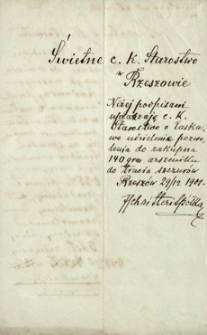 Świetne c. k. Starostwo
w
Rzeszowie
Niżej podpisani
upraszają c. k.
Starostwo o łaska-
we udzielenie pozwo-
lenia do zakupna
140 gram arszeniku
do trucia szczurów
Rzeszów 29/12 1901.